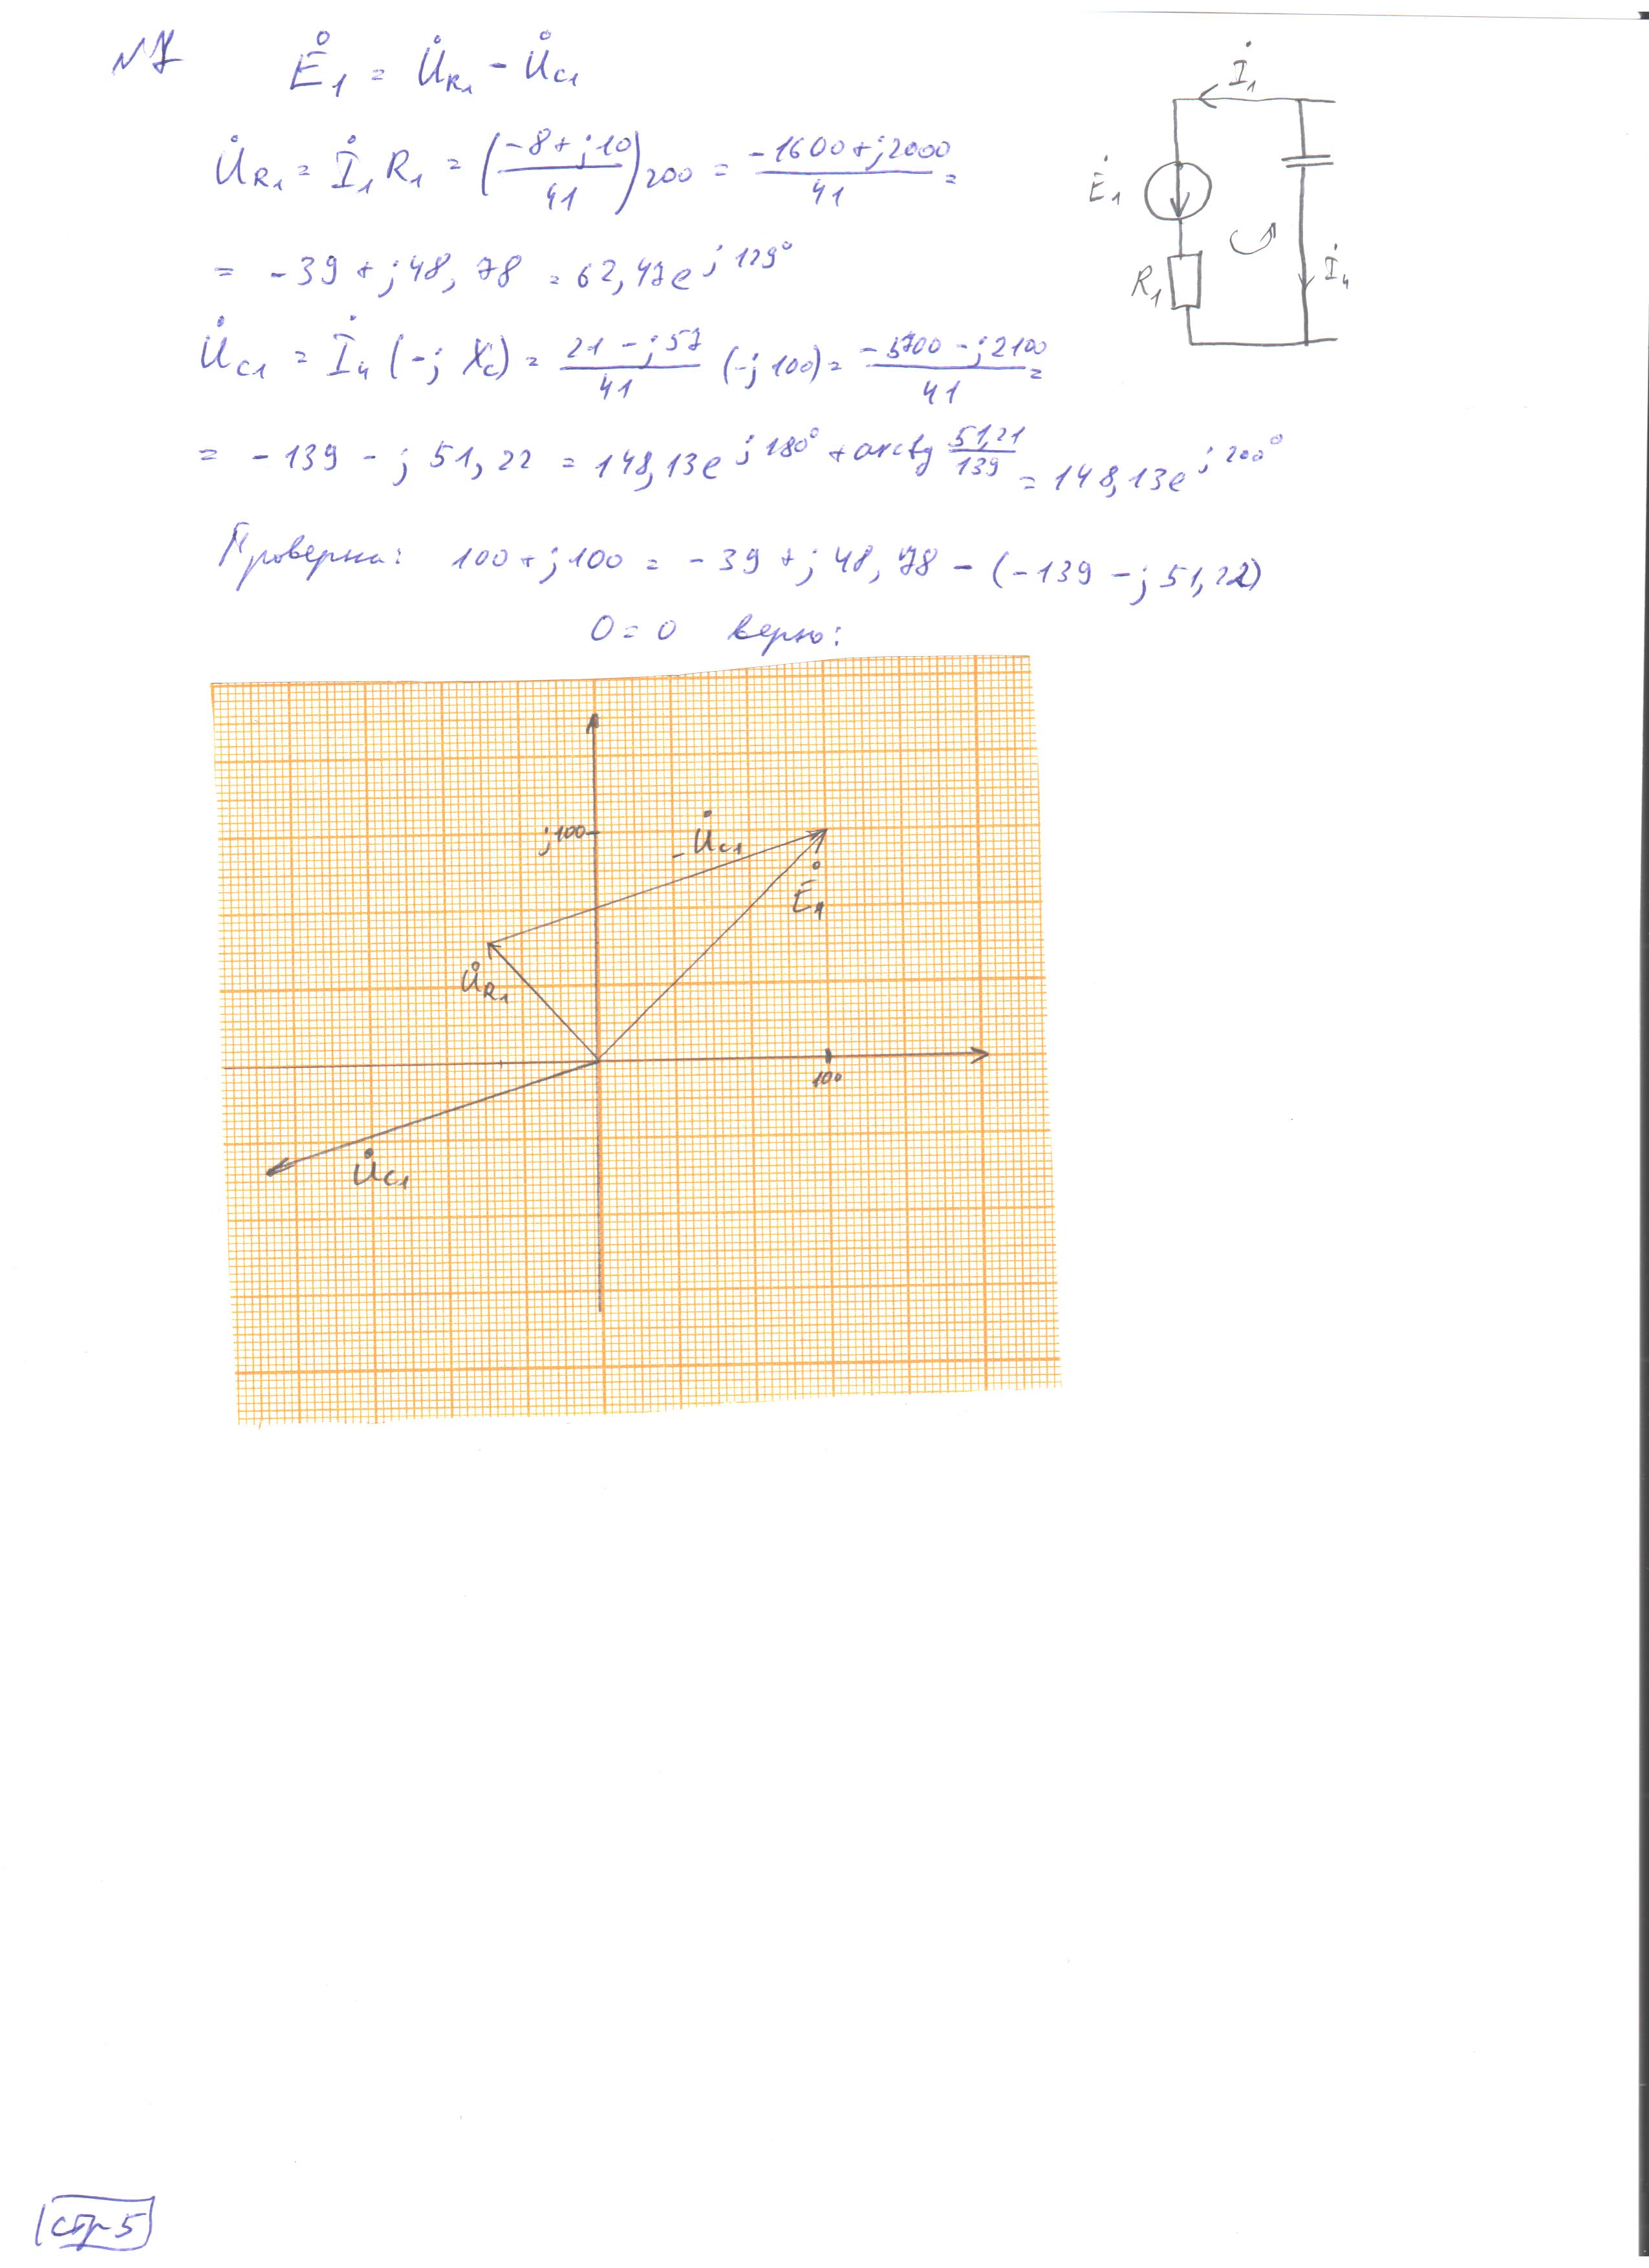 №7 E̊₁ = U̇_R₁ - U̇_C₁
U̇_R₁ = İ₁ R₁ = ((-8 + j10)/41) 200 = (-1600 + j2000)/41 =
= -39 + j48,78 = 62,47e^(j129°)
U̇_C₁ = İ₄ (-j X_C) = (21 - j57)/41 (-j100) = (-5700 - j2100)/41 =
= -139 - j51,22 = 148,13e^(j180° + arctg 51,21/139) = 148,13e^(j200°)
Проверка: 100 + j100 = -39 + j48,78 - (-139 - j51,22)
0 = 0 верно:
İ₁
Ė₁
R₁
İ₄
j100
-U̇_C₁
E̊₁
U̇_R₁
100
U̇_C₁
стр 5